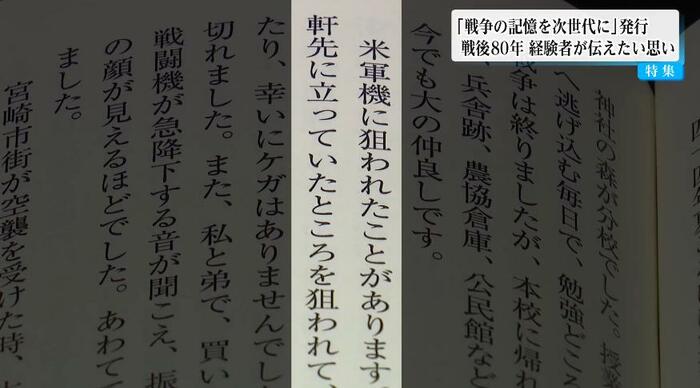 「戦争の記憶を次世代に」発行
戦後80年 経験者が伝えたい思い
特集
神社の森が分校でした。授業
へ逃げ込む毎日で、勉強どころ
戦争は終りましたが、本校に帰れ
、兵舎跡、農協倉庫、公民館など
今でも大の仲良しです。
米軍機に狙われたことがあります。
軒先に立っていたところを狙われて、
たり、幸いにケガはありませんでし
切れました。また、私と弟で、買い
戦闘機が急降下する音が聞こえ、振
の顔が見えるほどでした。あわて
ました。
宮崎市街が空襲を受けた時、